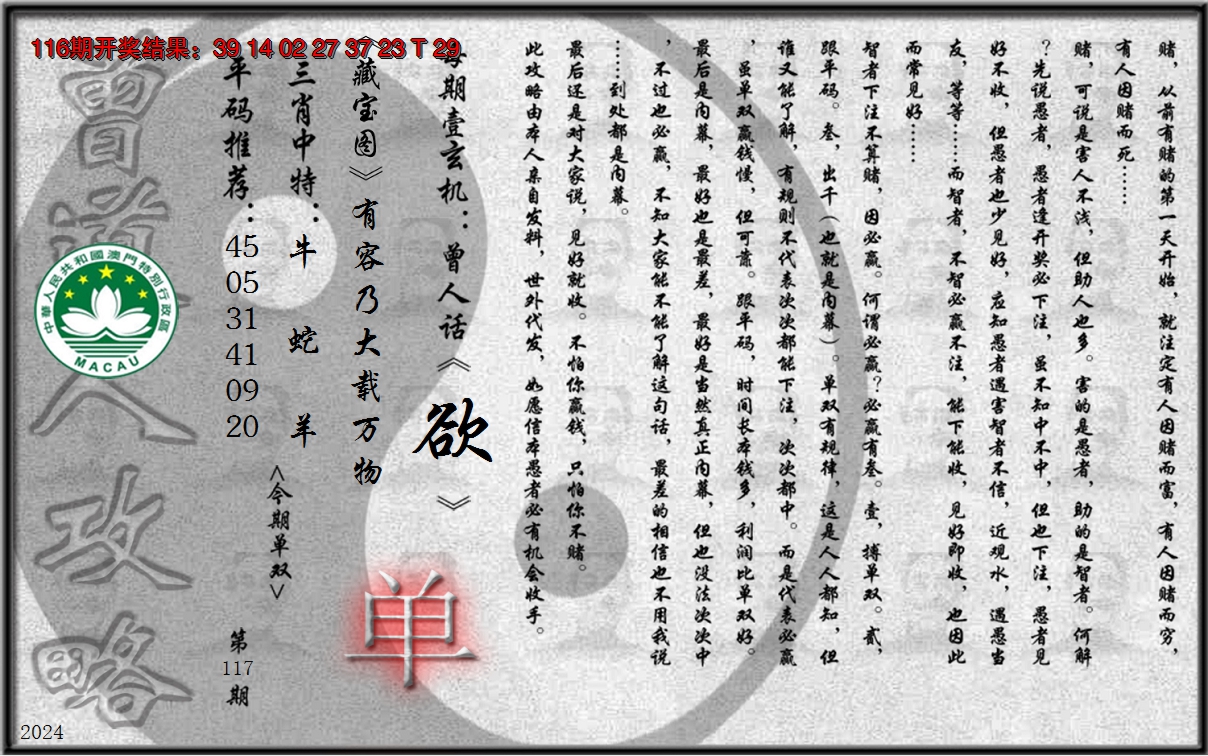 116期开奖结果：39 14 02 27 37 23 T 29
赌，从前有赌的第一天开始，就注定有人因赌而富，有人因赌而穷，
有人因赌而死……
赌，可说是害人不浅，但助人也多。害的是愚者，助的是智者。何解
？先说愚者，愚者逢开奖必下注，虽不知中不中，但也下注，愚者见
好不收，但愚者也少见好，应知愚者遇害智者不信，近观水，遇愚当
友，等等……而智者，不智必赢不注，能下能收，见好即收，也因此
而常见好……
智者下注不算赌，因必赢。何谓必赢？必赢有叁。壹，搏单双。贰，
跟平码。叁，出千（也就是内幕）。单双有规律，这是人人都知，但
谁又能了解，有规则不代表次次都能下注，次次都中。而是代表必赢
，虽单双赢钱慢，但可靠。跟平码，时间长本钱多，利润比单双好。
最后是内幕，最好也是最差，最好是当然真正内幕，但也没法次次中
，不过也必赢，不知大家能不能了解这句话，最差的相信也不用我说
……到处都是内幕。
最后还是对大家说，见好就收。不怕你赢钱，只怕你不赌。
此攻略由本人亲自发料，世外代发，如愿信本愚者必有机会收手。
每期壹玄机：曾人话《欲》
《藏宝图》有容乃大载万物
单
三肖中特：牛 蛇 羊
<今期单双>
平码推荐：45 05 31 41 09 20
第117期
曾道人攻略
中華人民共和國澳門特別行政區
MACAU
2024